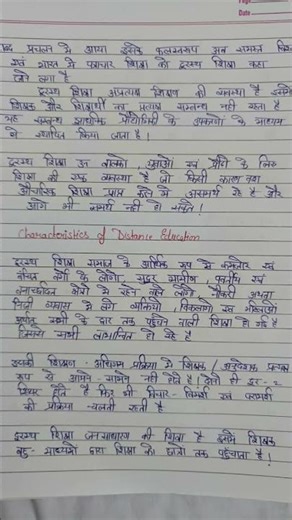 Page
Date
शब्द प्रचलन में आया इसके फलस्वरूप अब समस्त विश्व
एवं भारत में पत्राचार शिक्षा को दूरस्थ शिक्षा कहा
जाने लगा है
दूरस्थ शिक्षा अप्रत्यक्ष शिक्षण की व्यवस्था है इसमें
शिक्षक और शिक्षार्थी का प्रत्यक्ष सम्बन्ध नहीं रहता है
यह सम्बन्ध शैक्षिक प्रौद्योगिकी के उपकरणों के माध्यम
से स्थापित किया जाता है।
दूरस्थ शिक्षा उन बालकों, युवाओं एवं प्रौढ़ों के लिए
शिक्षा की एक व्यवस्था है जो किसी कारण वश
औपचारिक शिक्षा प्राप्त करने में असमर्थ रहे है और
आगे भी समर्थ नहीं हो सकते।
Characteristics of Distance Education
दूरस्थ शिक्षा समाज के आर्थिक रूप से कमजोर एवं
वंचित वर्गों के लोगों, सुदूर ग्रामीण, पर्वतीय एवं
वनाच्छादित क्षेत्रों में रहने वाले लोगों नौकरी अथवा
निजी व्यवसाय में लगे व्यक्तियों, विकलांगों एवं महिलाओं
अर्थात् सभी के द्वार तक पहुँचने वाली शिक्षा हो गई है
जिससे सभी लाभान्वित हो रहे है
इसकी शिक्षण - अधिगम प्रक्रिया में शिक्षक / अनुदेशक प्रत्यक्ष
रूप से आमने - सामने नहीं होते है। दोनों ही दूर - 2
स्थित होते है फिर भी विचार - विमर्श एवं परामर्श
की प्रक्रिया चलती रहती है
दूरस्थ शिक्षा जनसाधारण की शिक्षा है इसमें शिक्षक
बहु - माध्यमों द्वारा शिक्षा को छात्रों तक पहुँचाता है।